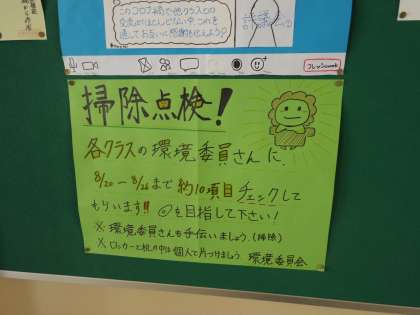 このコロナ禍で他クラスとの
交流がほとんどない中、これを
通してお互いに感謝を伝えよう♡
フレッシュweek
掃除点検!
各クラスの環境委員さんに、
8/20〜8/26まで約10項目チェックして
もらいます!! ◎を目指して下さい!
※環境委員さんも手伝いましょう。(掃除)
※ロッカーと机の中は個人で片づけましょう。環境委員会